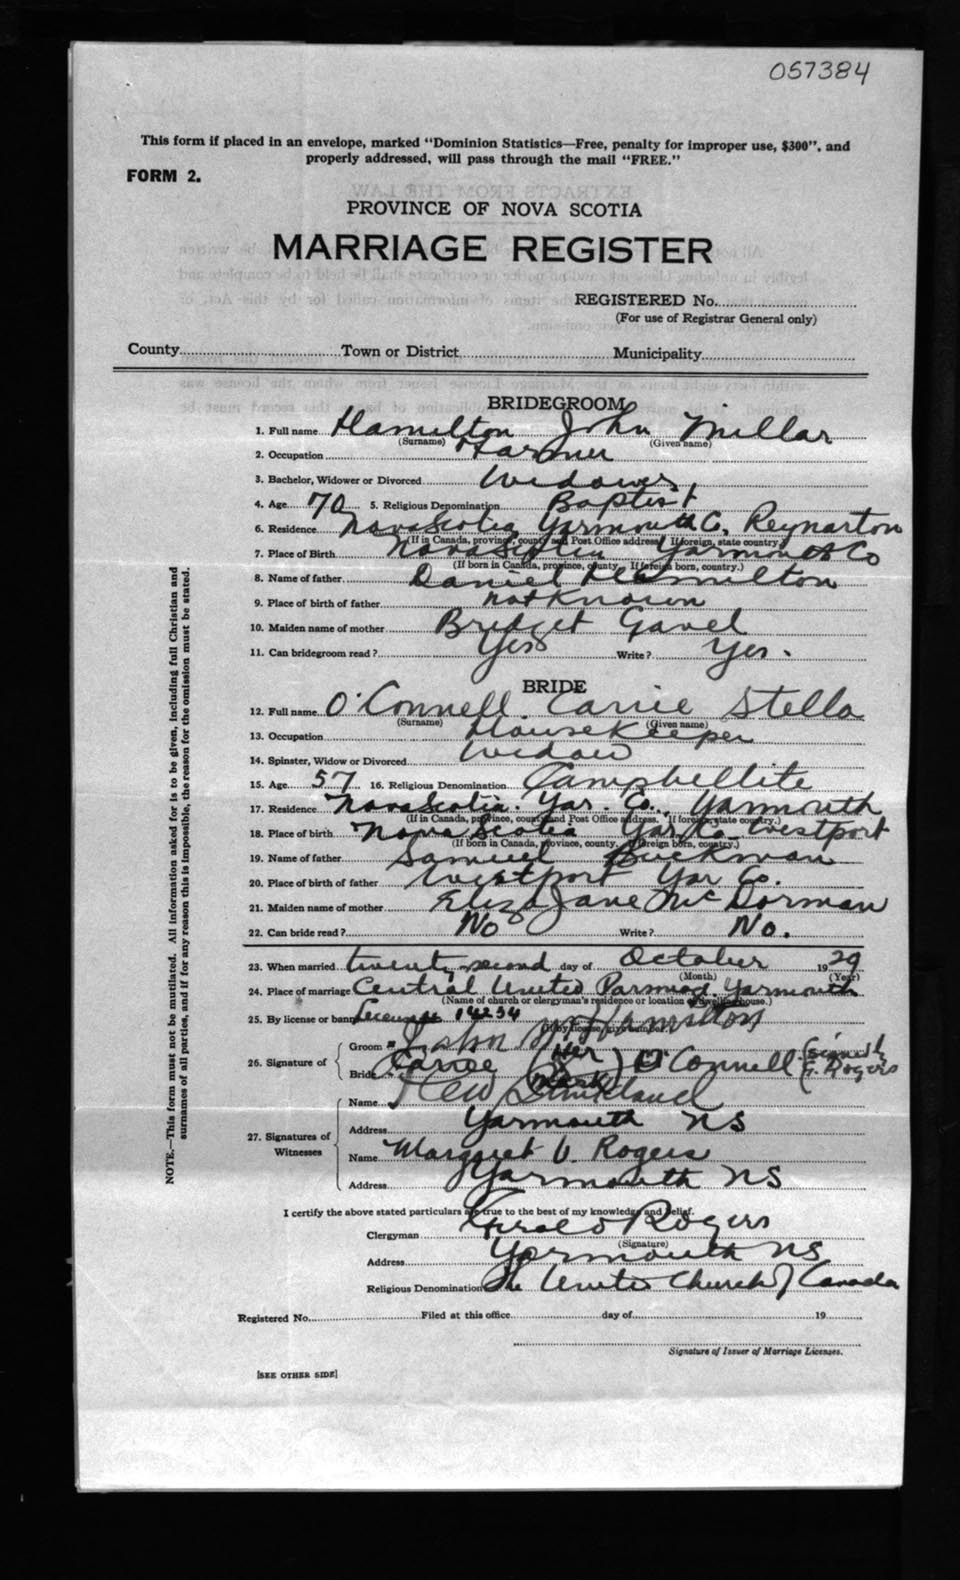 057384
This form if placed in an envelope, marked "Dominion Statistics—Free, penalty for improper use, $300", and
properly addressed, will pass through the mail "FREE."
FORM 2.
PROVINCE OF NOVA SCOTIA
MARRIAGE REGISTER
REGISTERED No.
(For use of Registrar General only)
County Town or District Municipality
BRIDEGROOM
1. Full name Hamilton John Millar
(Surname) (Given name)
2. Occupation Farmer
3. Bachelor, Widower or Divorced Widower
4. Age 70 5. Religious Denomination Baptist
6. Residence Nova Scotia Yarmouth Co. Reynarton
(If in Canada, province, county and Post Office address. If foreign, state country.)
7. Place of Birth Nova Scotia Yarmouth Co
(If born in Canada, province, county. If foreign born, country.)
8. Name of father Daniel Hamilton
9. Place of birth of father not Known
10. Maiden name of mother Bridget Gavel
11. Can bridegroom read? Yes Write? Yes.
BRIDE
12. Full name O'Connell. Carrie Stella
(Surname) (Given name)
13. Occupation Housekeeper
14. Spinster, Widow or Divorced Widow
15. Age 57 16. Religious Denomination Campbellite
17. Residence Nova Scotia. Yar. Co. Yarmouth
(If in Canada, province, county and Post Office address. If foreign state country.)
18. Place of birth Nova Scotia Yar Co Westport
(If born in Canada, province, county. If foreign born, country.)
19. Name of father Samuel Buckman
20. Place of birth of father Westport Yar Co.
21. Maiden name of mother Eliza Jane McDorman
22. Can bride read? No Write? No.
23. When married twenty second day of October 1929
(Month) (Year)
24. Place of marriage Central United Parsonage Yarmouth
(Name of church or clergyman's residence or location of dwelling house.)
25. By license or banns License 14234
(If by license, give number)
26. Signature of
Groom John M Hamilton
Bride Carrie (her X mark) O'Connell (signed by G. Rogers
27. Signatures of Witnesses
Name Strickland
Address Yarmouth NS
Name Margaret V. Rogers
Address Yarmouth NS
I certify the above stated particulars are true to the best of my knowledge and belief.
Clergyman Gerald Rogers
(Signature)
Address Yarmouth NS
Religious Denomination The United Church of Canada
Registered No. Filed at this office day of 19
Signature of Issuer of Marriage Licenses.
[SEE OTHER SIDE]
NOTE.—This form must not be mutilated. All information asked for is to be given, including full Christian and
surnames of all parties, and if for any reason this is impossible, the reason for the omission must be stated.